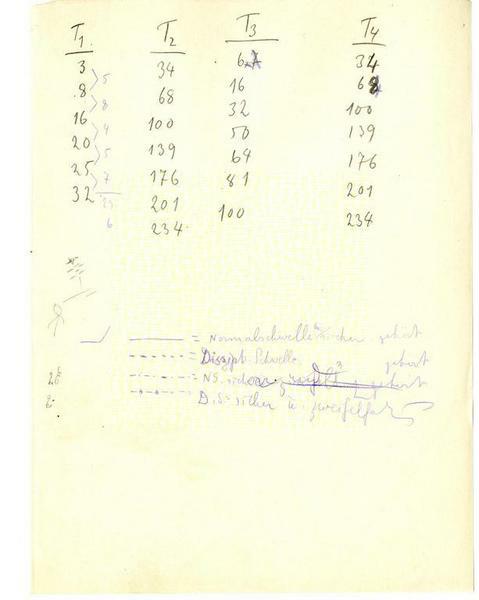 T1 T2 T3 T4
3 34 6 34
5
8 68 16 68
8
16 100 32 100
4
20 139 50 139
5
25 176 64 176
7
32 201 81 201
25
234 100 234
6
= Normalschwelle sicher gehört
= Disept. Schwelle gehört
= NS. sicher gehört
= D.S. sicher u. zweifelhaft